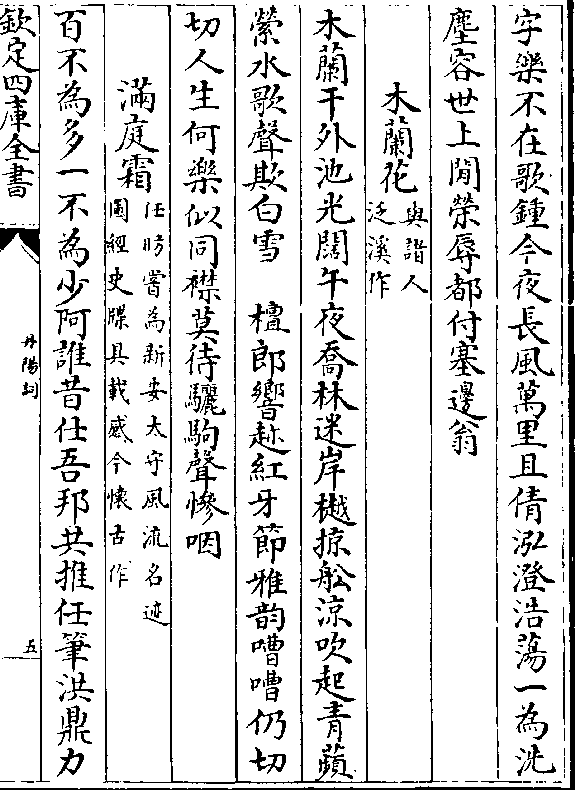 字樂不在歌鍾今夜長風萬里且倩泓澄浩蕩一為洗
塵容世上閒榮辱都付塞邊翁
木蘭花與諧人
泛溪作
木蘭干外池光闊午夜喬林迷岸樾掠船涼吹起青蘋
縈水歌聲欺白雪　檀郎響趂紅牙節雅韵嘈嘈仍切
切人生何樂似同襟莫待驪駒聲慘咽
滿庭霜任昉嘗為新安太守風流名迹
圖經史牒具載感今懷古作
百不為多一不為少阿誰昔仕吾邦共推任筆洪鼎力
欽定四庫全書
丹陽詞
五